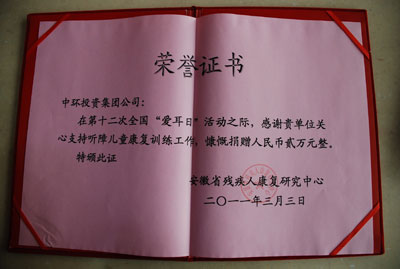 荣誉证书
中环投资集团公司：
在第十二次全国“爱耳日”活动之际，感谢贵单位关
心支持听障儿童康复训练工作，慷慨捐赠人民币贰万元整。
特颁此证
安徽省残疾人康复研究中心
二〇一一年三月三日